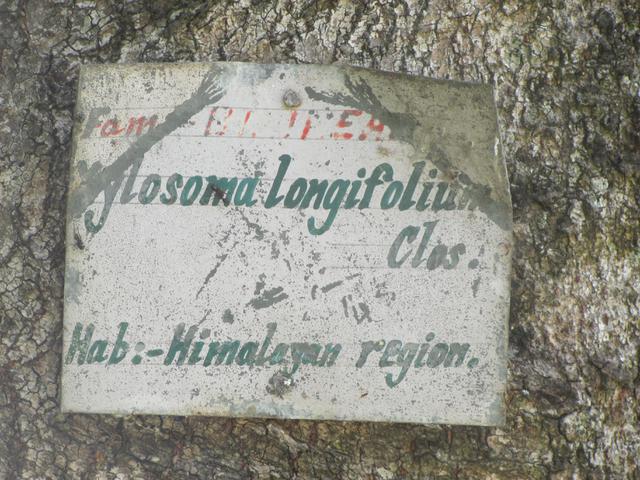 Fam
Xylosoma longifolium
Clos.
Hab:- Himalayan region.